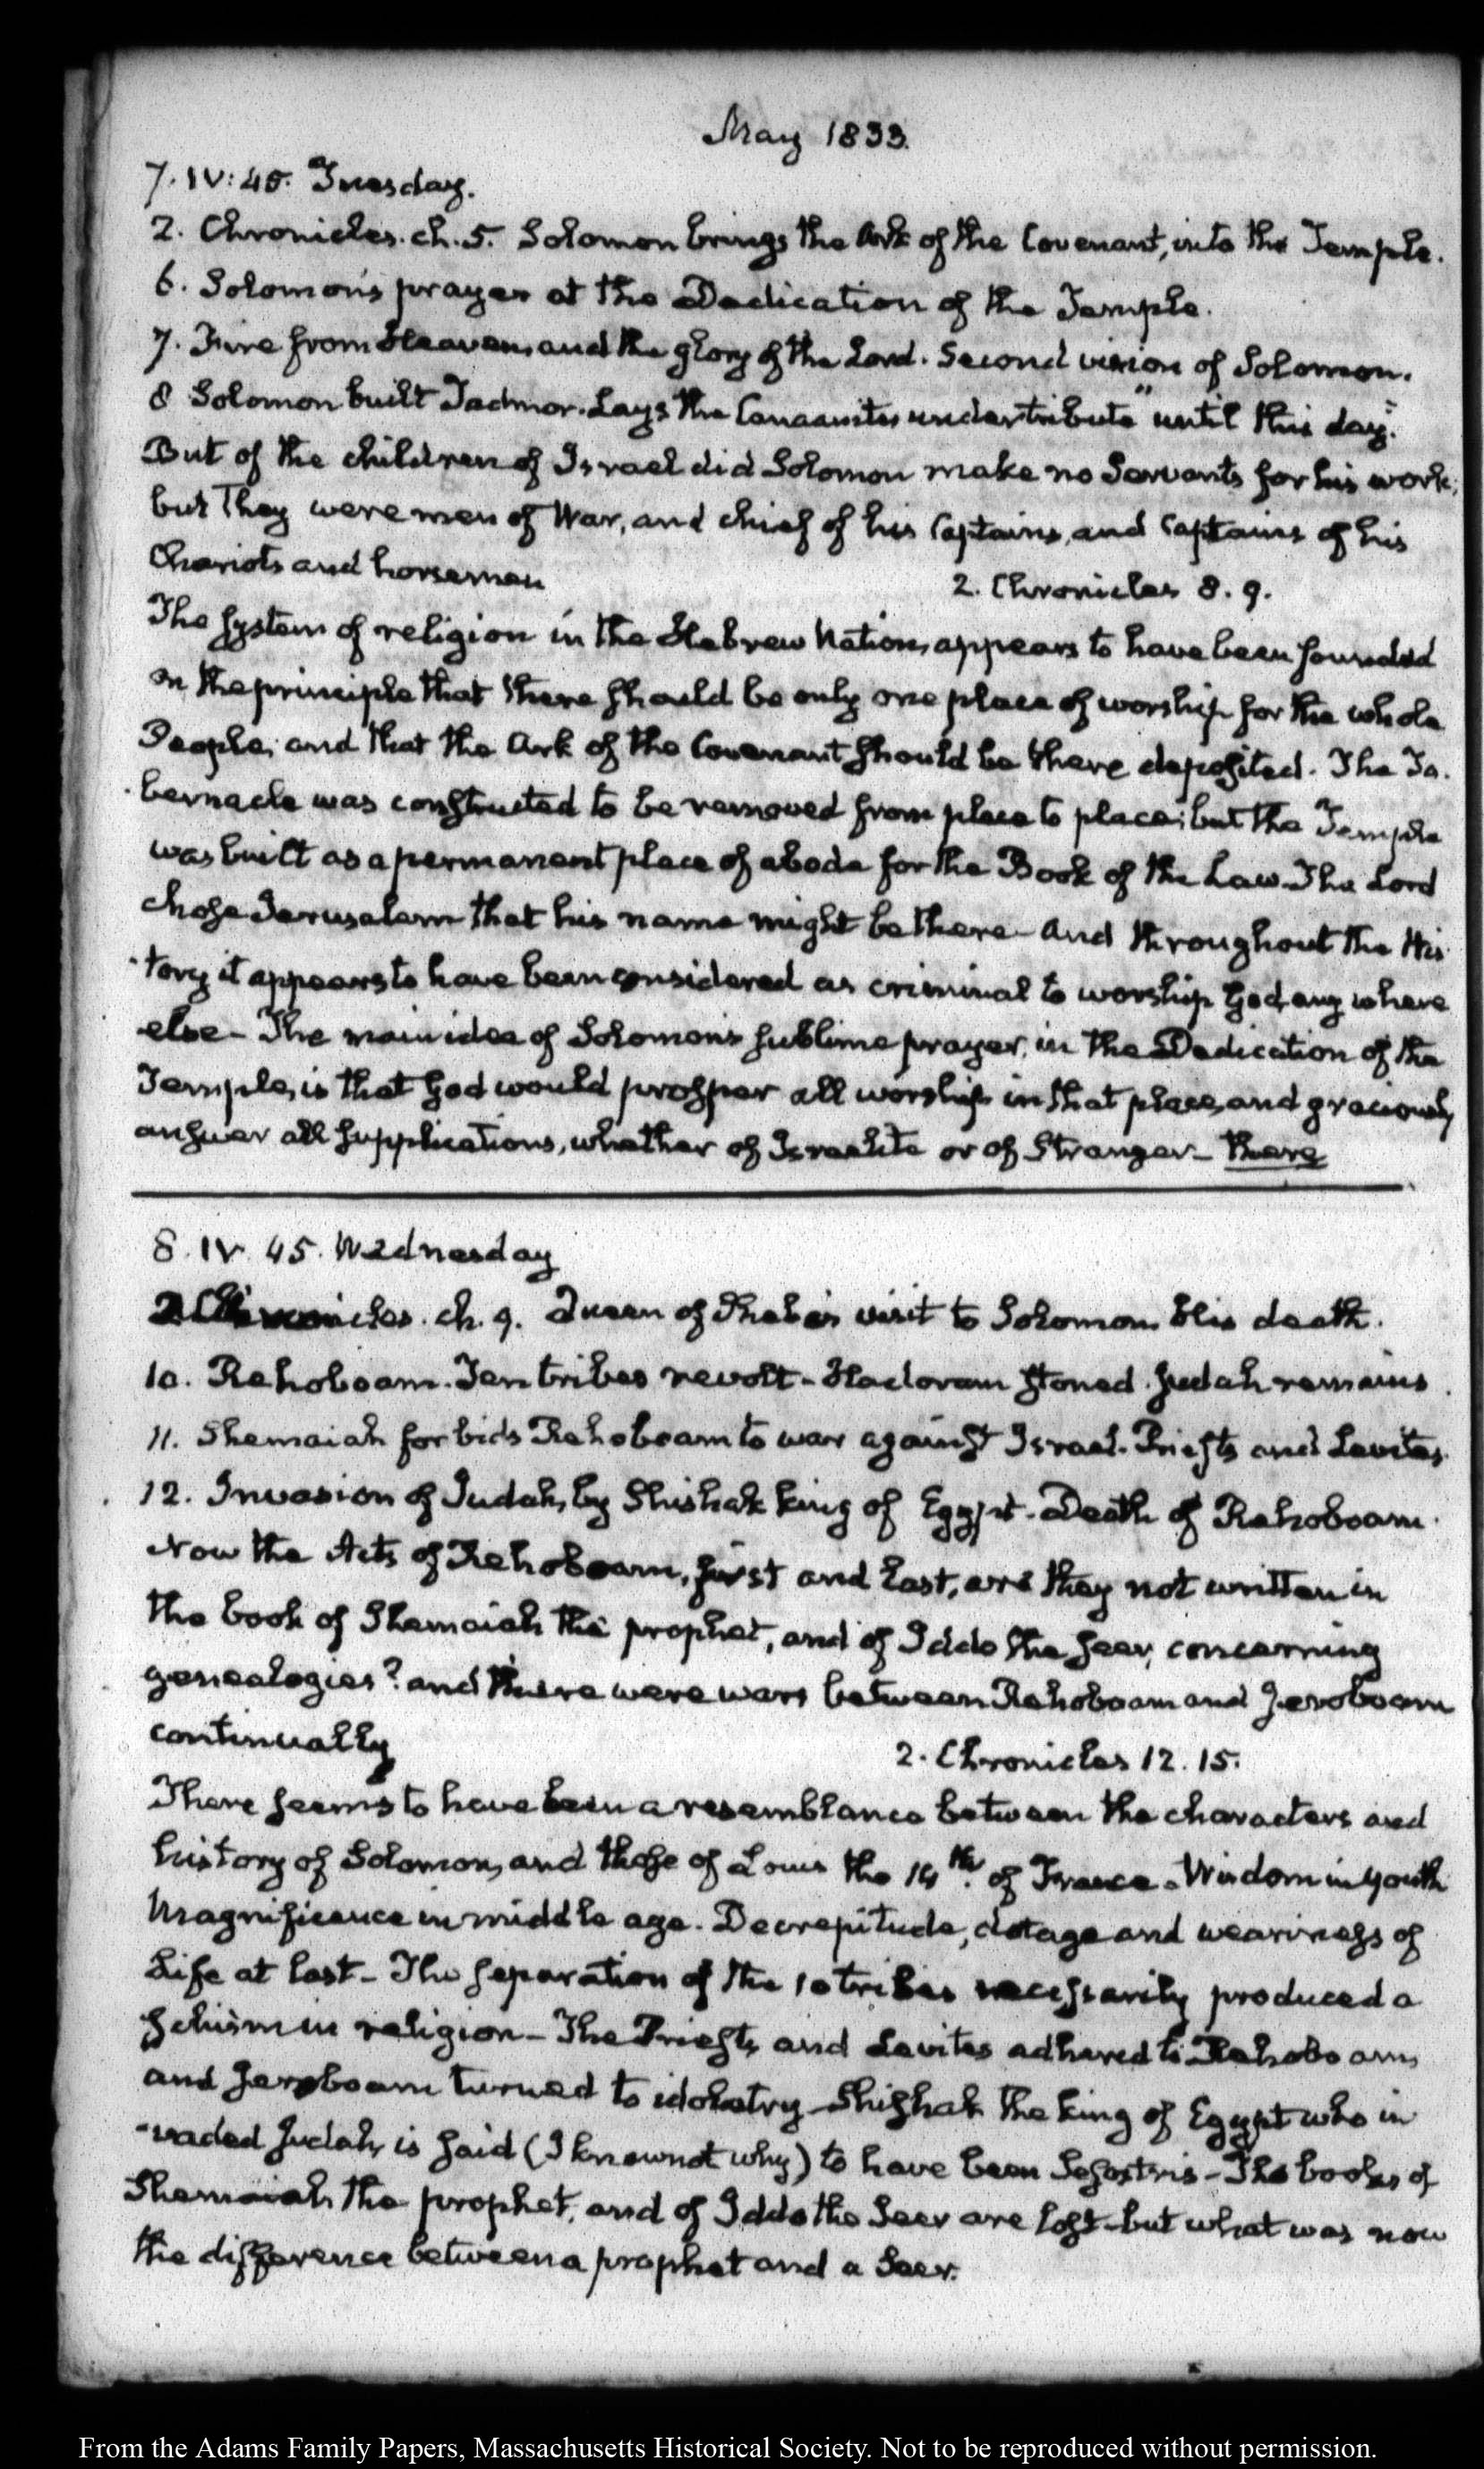 May 1833.
7. IV: 45. Tuesday.
2. Chronicles. ch. 5. Solomon brings the Ark of the Covenant, into the Temple.
6. Solomon's prayer at the Dedication of the Temple.
7. Fire from Heaven, and the glory of the Lord. Second vision of Solomon.
8 Solomon built Tadmor. Lays the Canaanites under tribute "until this day."
But of the children of Israel did Solomon make no Servants for his work;
but they were men of War, and chief of his Captains, and Captains of his
Chariots and horsemen
2. Chronicles 8. 9.
The system of religion in the Hebrew Nation, appears to have been founded
on the principle that there should be only one place of worship for the whole
People; and that the Ark of the Covenant should be there deposited. The Ta-
-bernacle was constructed to be removed from place to place; but the Temple
was built as a permanent place of abode for the Book of the Law. The Lord
chose Jerusalem that his name might be there - and throughout the His-
-tory it appears to have been considered as criminal to worship God any where
else - The main idea of Solomon's sublime prayer, in the Dedication of the
Temple, is that God would prosper all worship in that place, and graciously
answer all supplications, whether of Israelite or of Stranger - there
8. IV. 45. Wednesday
2 Chronicles. ch. 9. Queen of Sheba's visit to Solomon. His death.
10. Rehoboam. Ten tribes revolt - Hadoram stoned. Judah remains.
11. Shemaiah forbids Rehoboam to war against Israel. Priests and Levites.
12. Invasion of Judah, by Shishak king of Egypt - Death of Rehoboam.
Now the Acts of Rehoboam, first and last, are they not written in
the book of Shemaiah the prophet, and of Iddo the seer, concerning
genealogies? and there were wars between Rehoboam and Jeroboam
continually
2. Chronicles 12. 15.
There seems to have been a resemblance between the characters and
history of Solomon, and those of Louis the 14th. of France - Wisdom in youth
Magnificence in middle age. Decrepitude, dotage and weariness of
Life at last - The separation of the 10 tribes necessarily produced a
schism in religion - The Priests and Levites adhered to Rehoboam,
and Jeroboam turned to idolatry - Shishak the king of Egypt who in
-vaded Judah, is said (I know not why) to have been Sesostris - The books of
Shemaiah the prophet, and of Iddo the Seer are lost - but what was now
the difference between a prophet and a Seer.
From the Adams Family Papers, Massachusetts Historical Society. Not to be reproduced without permission.